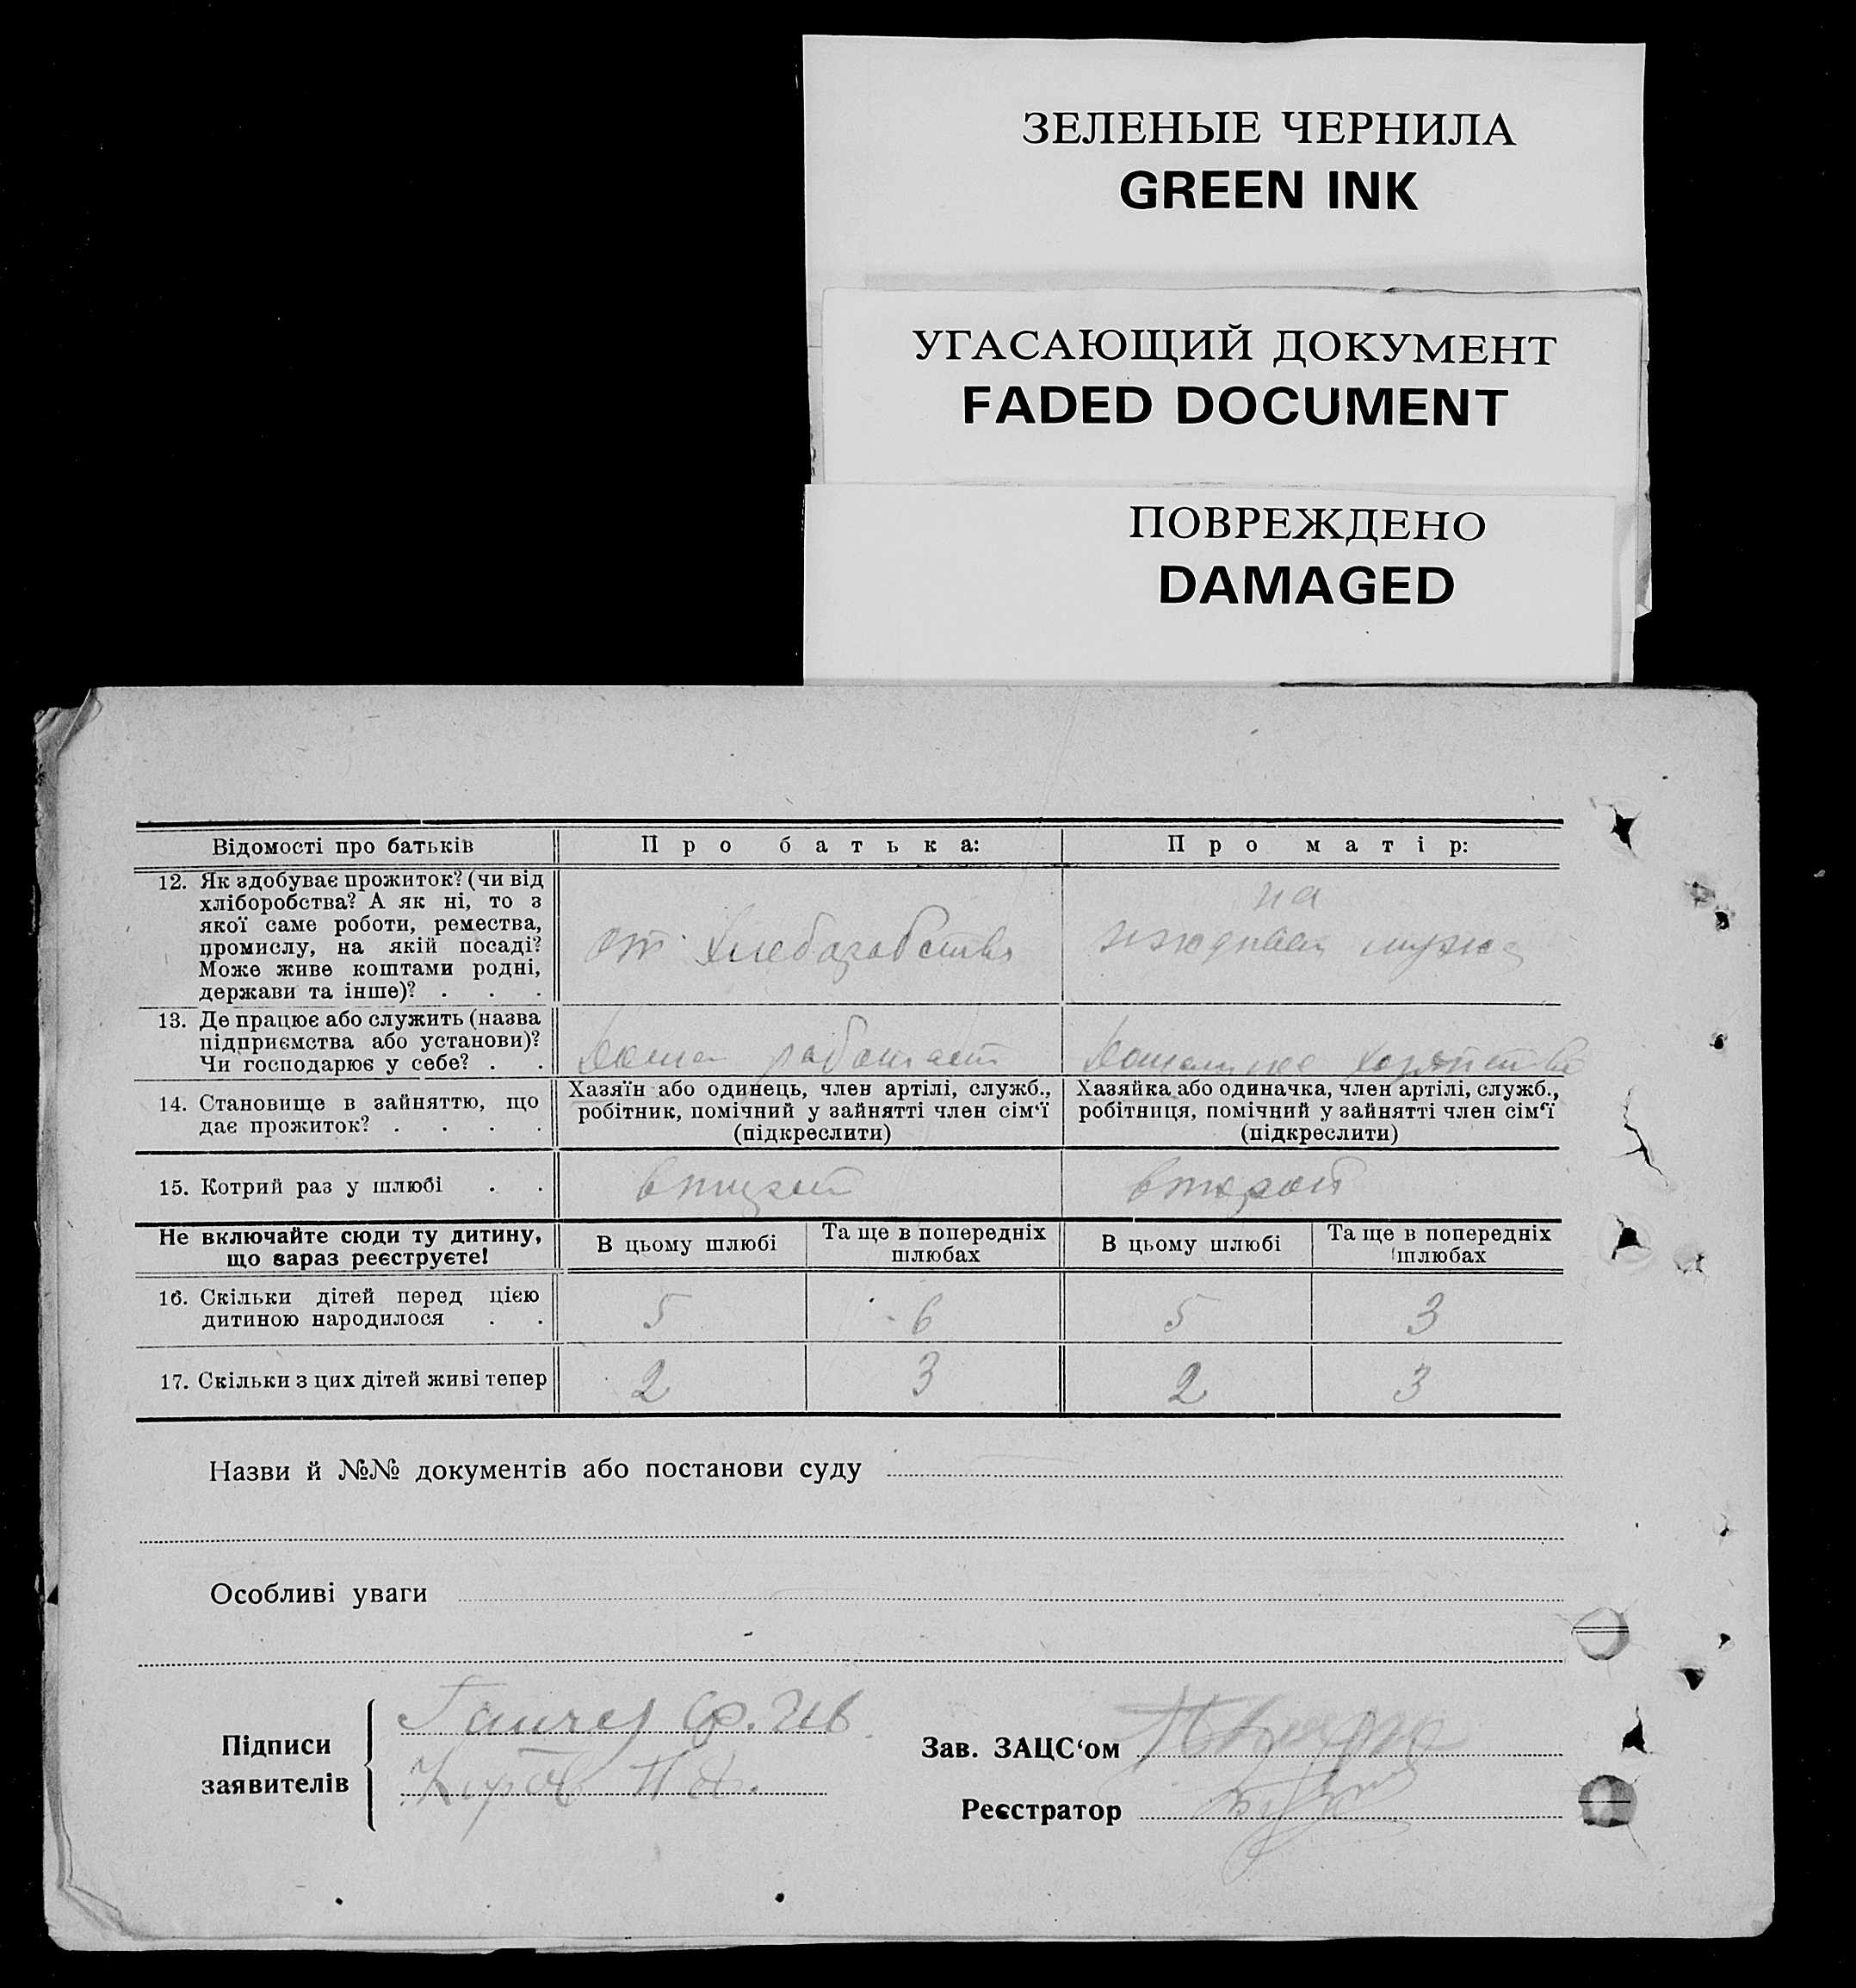 ЗЕЛЕНЫЕ ЧЕРНИЛА
GREEN INK
УГАСАЮЩИЙ ДОКУМЕНТ
FADED DOCUMENT
ПОВРЕЖДЕНО
DAMAGED
Відомості про батьків Про батька: Про матір:
12. Як здобуває прожиток? (чи від
хліборобства? А як ні, то з
якої саме роботи, ремества,
промислу, на якій посаді?
Може живе коштами родні,
держави та інше)? . . .
от Хлеборобства
на
мужа
13. Де працює або служить (назва
підприємства або установи)?
Чи господарює у себе? . .
Дома работает
14. Становище в зайняттю, що
дає прожиток? . . . .
Хазяїн або одинець, член артілі, служб.,
робітник, помічний у зайнятті член сім'ї
(підкреслити)
Хазяйка або одиначка, член артілі, служб.,
робітниця, помічний у зайнятті член сім'ї
(підкреслити)
15. Котрий раз у шлюбі . . второй
Не включайте сюди ту дитину,
що зараз реєструєте!
В цьому шлюбі
Та ще в попередніх
шлюбах
В цьому шлюбі
Та ще в попередніх
шлюбах
16. Скільки дітей перед цією
дитиною народилося . .
5 6 5 3
17. Скільки з цих дітей живі тепер 2 3 2 3
Назви й №№ документів або постанови суду
Особливі уваги
Підписи
заявителів
Зав. ЗАЦС'ом
Реєстратор